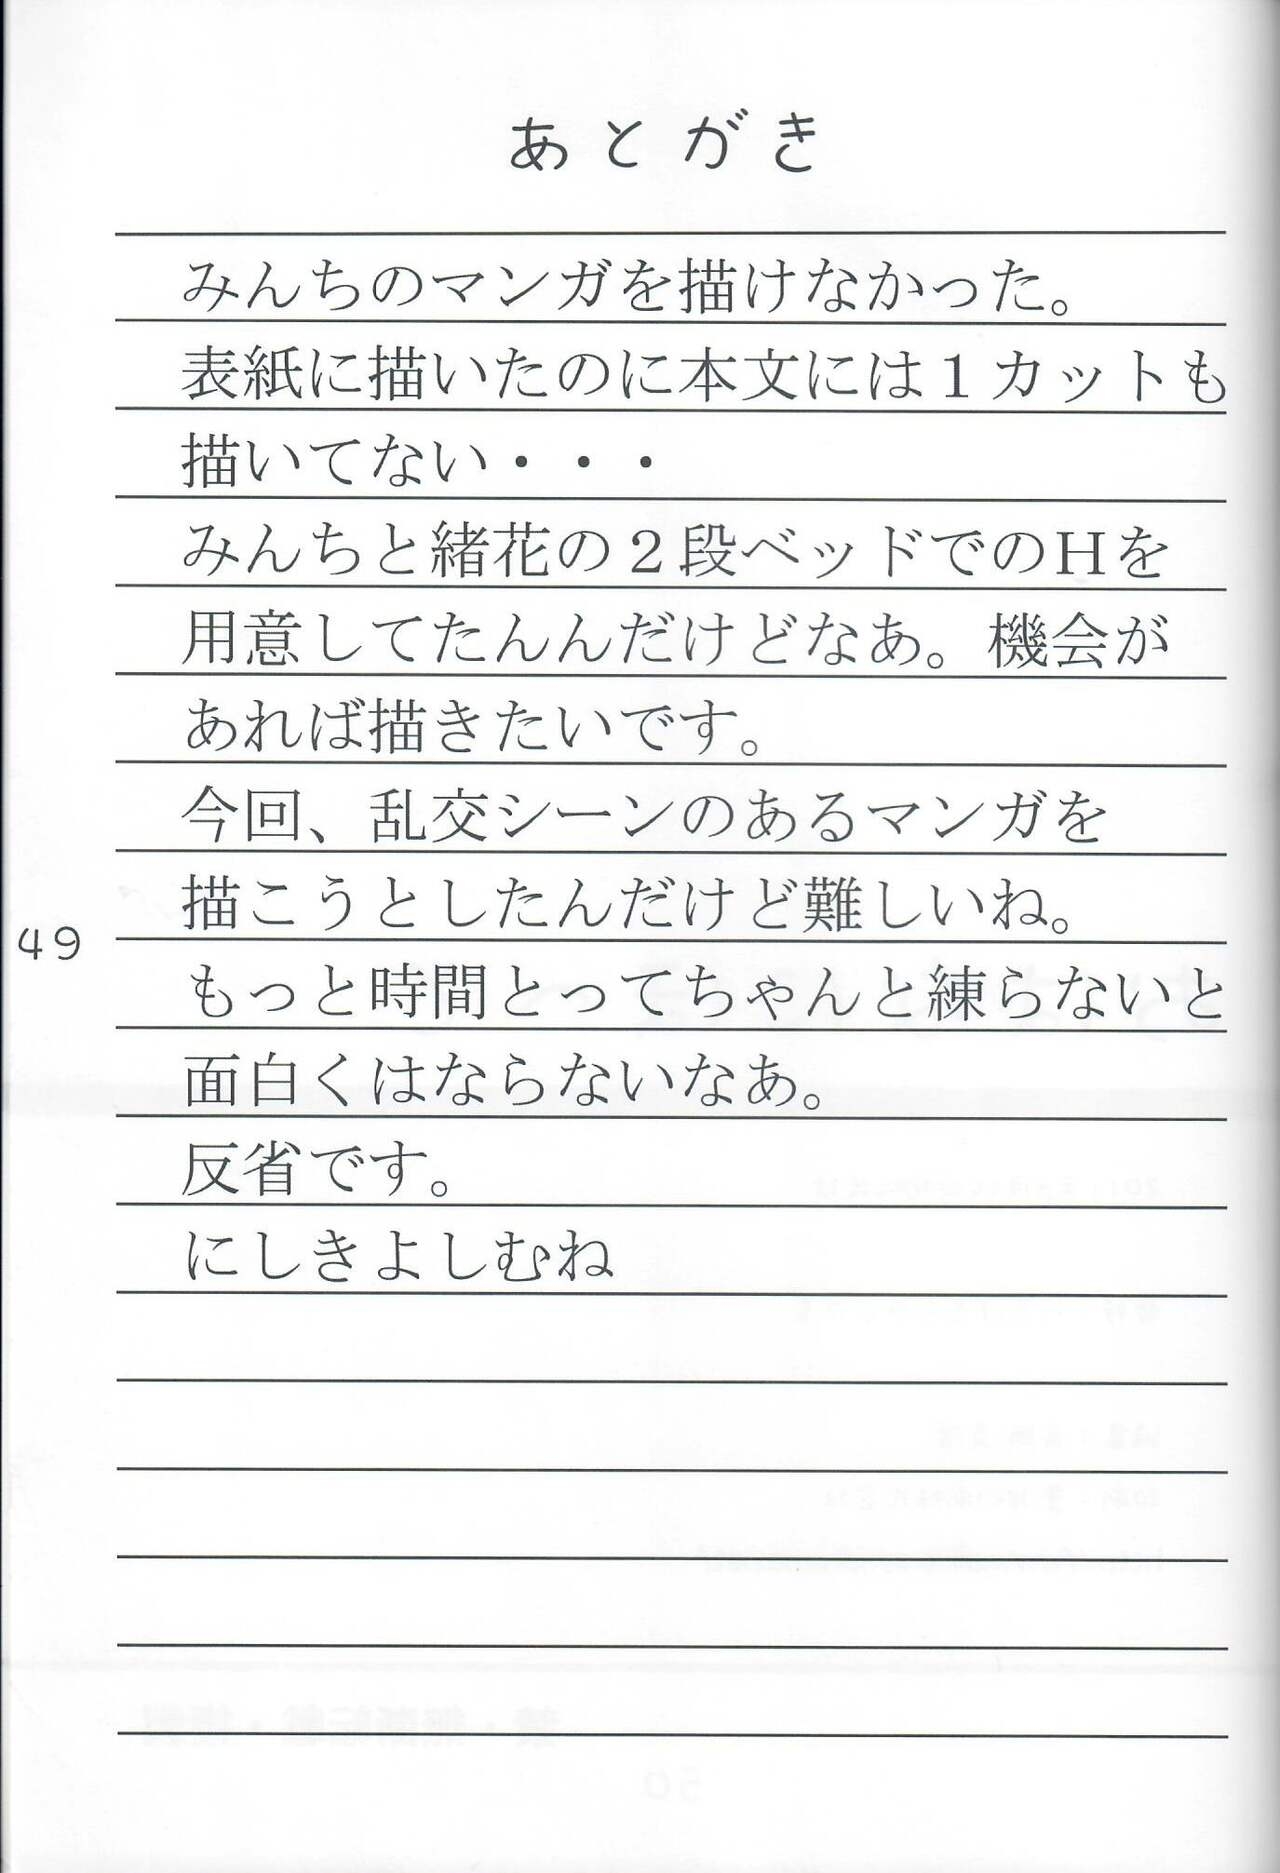 あとがき
みんちのマンガを描けなかった。
表紙に描いたのに本文には１カットも
描いてない・・・
みんちと緒花の２段ベッドでのＨを
用意してたんんだけどなあ。機会が
あれば描きたいです。
今回、乱交シーンのあるマンガを
描こうとしたんだけど難しいね。
もっと時間とってちゃんと練らないと
面白くはならないなあ。
反省です。
にしきよしむね
49